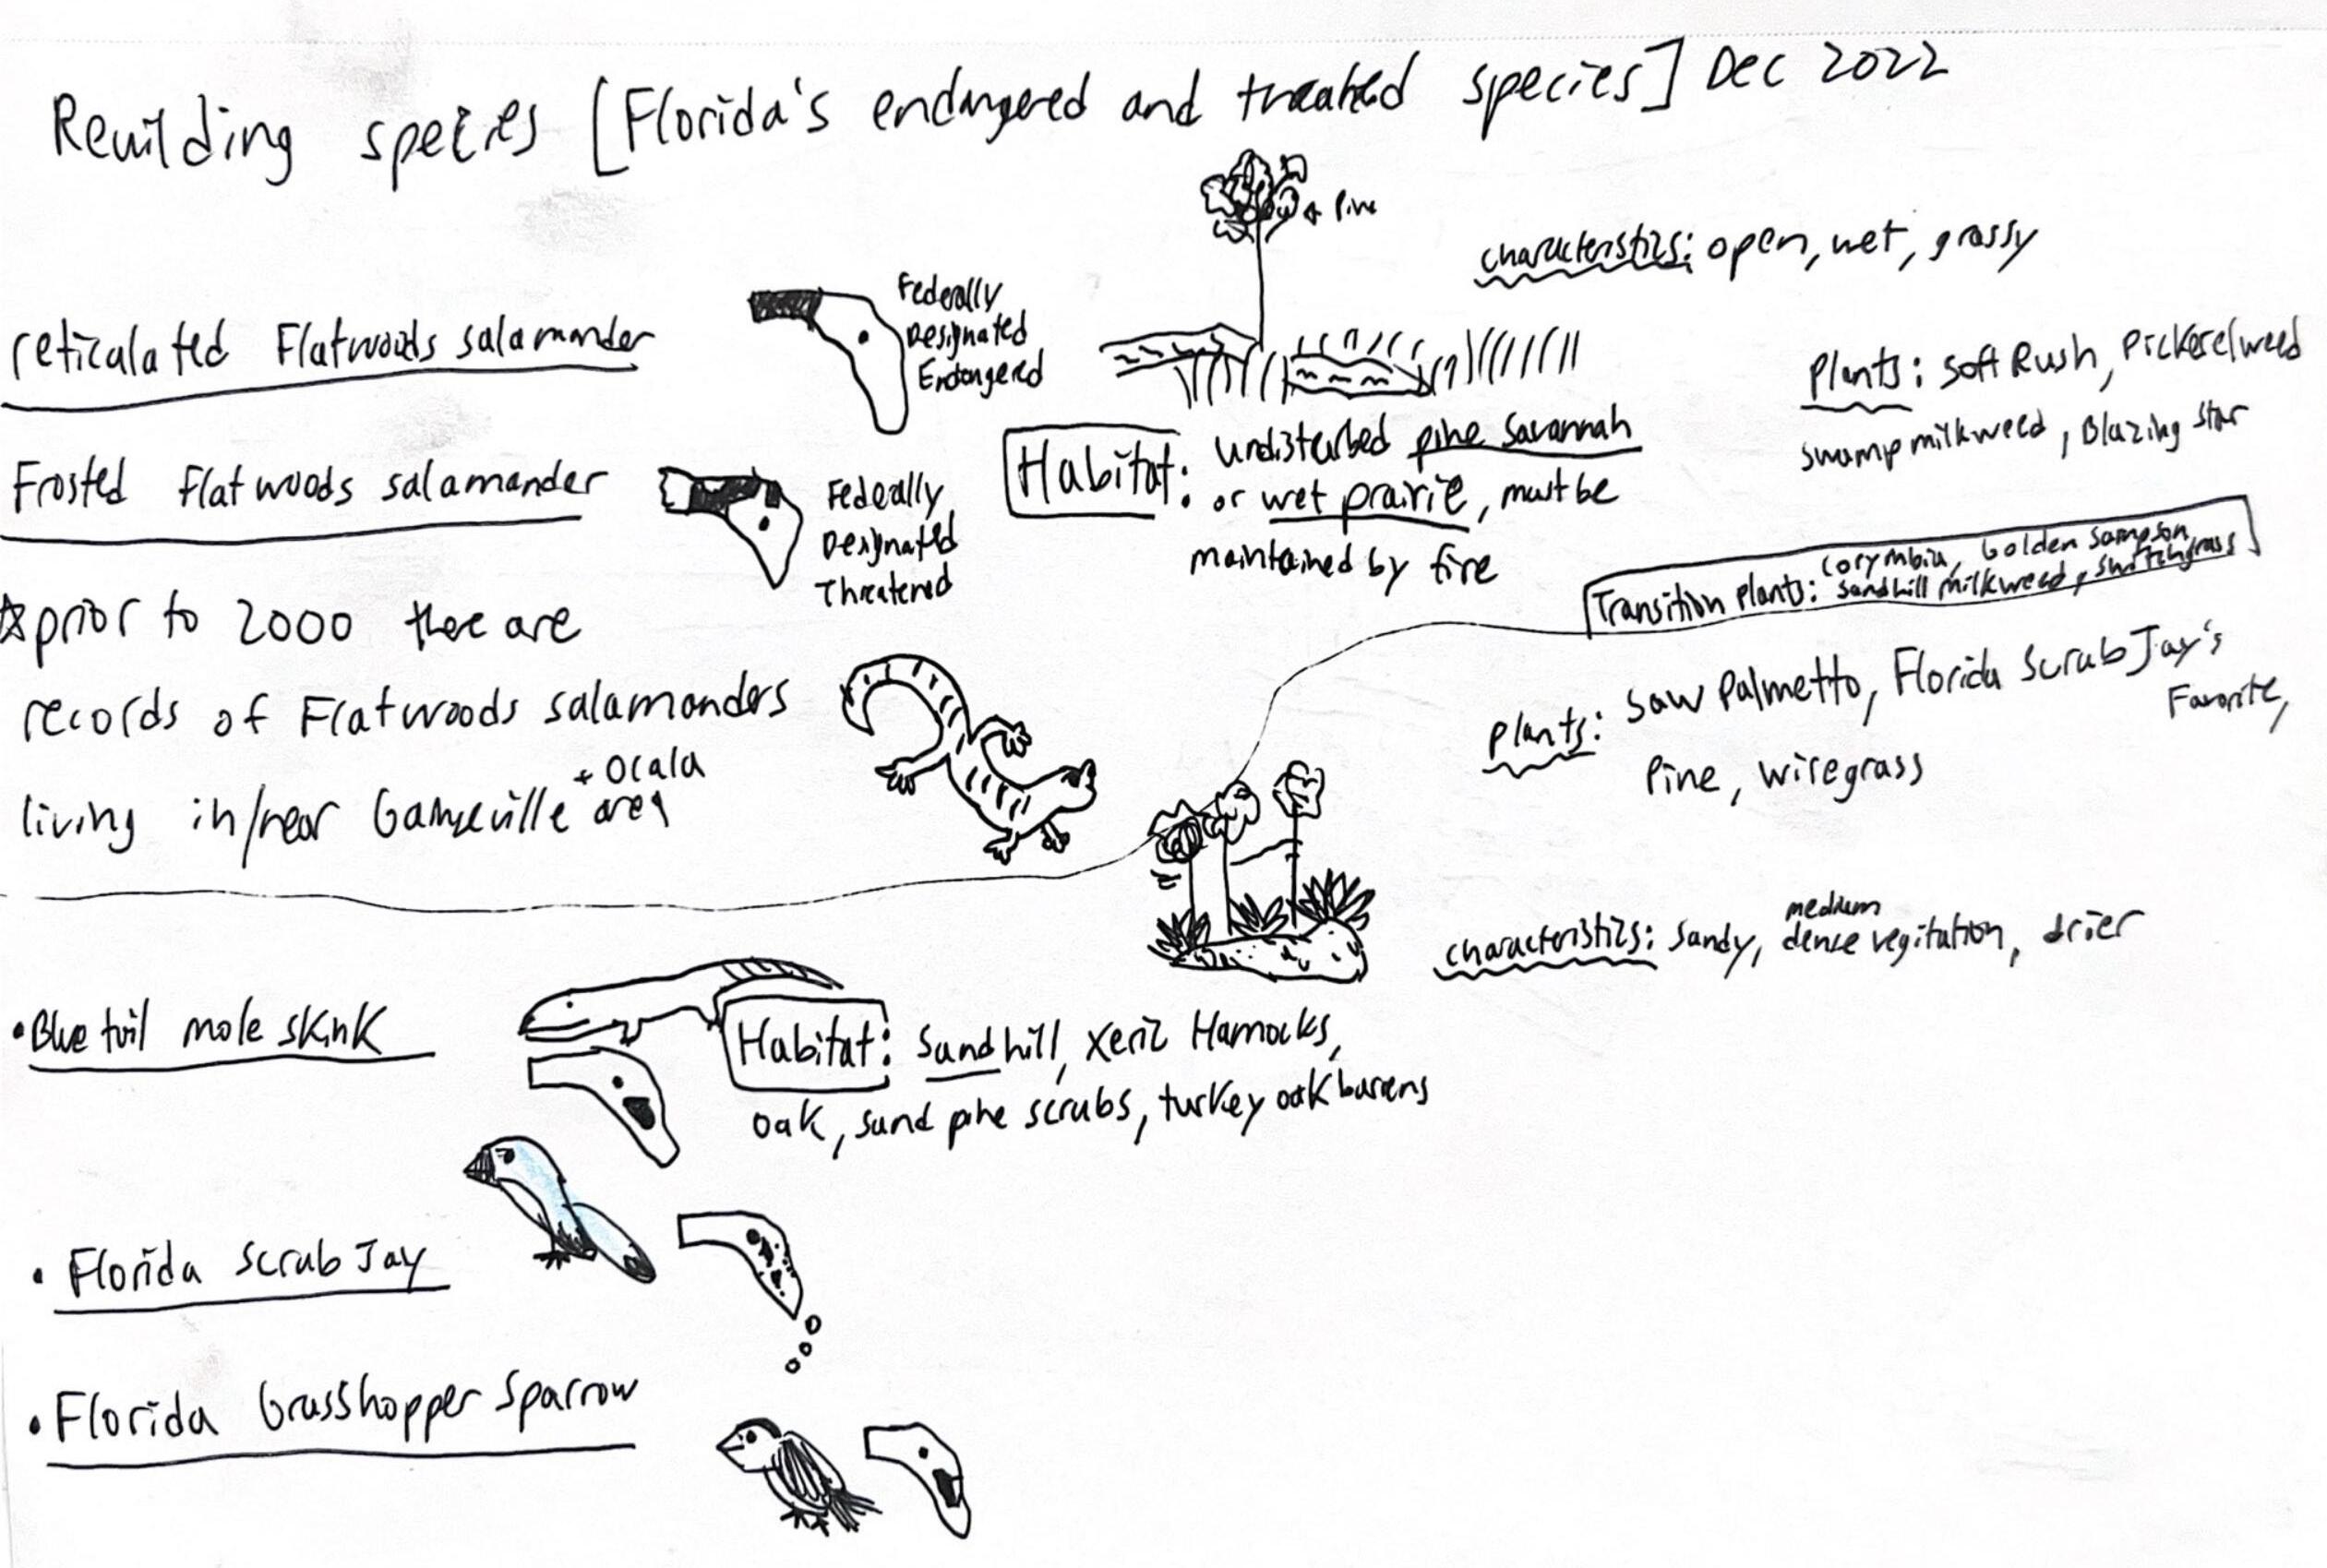 Rewilding species [Florida's endangered and treated species] Dec 2022
← Pine
characteristics: open, wet, grassy
Federally
Designated
Endangered
reticulated Flatwoods salamander
Plants: Soft Rush, Pickerelweed
swamp milkweed, Blazing star
Habitat: undisturbed pine savannah
or wet prairie, must be
maintained by fire
Frosted Flatwoods salamander
Federally
Designated
Threatened
Transition Plants: Corymbia, Golden Sampson
Sandhill milkweed, switchgrass
☆ prior to 2000 there are
records of Flatwoods salamanders
+ Ocala
living in/near Gainseville area
Plants: Saw Palmetto, Florida Scrub Jay's
Favorite,
Pine, wiregrass
medium
characteristics: sandy, dense vegitation, drier
• Blue tail mole skink
Habitat: Sandhill, xeric Hamocks,
oak, sand pine scrubs, turkey oak barrens
• Florida Scrub Jay
• Florida Grasshopper Sparrow